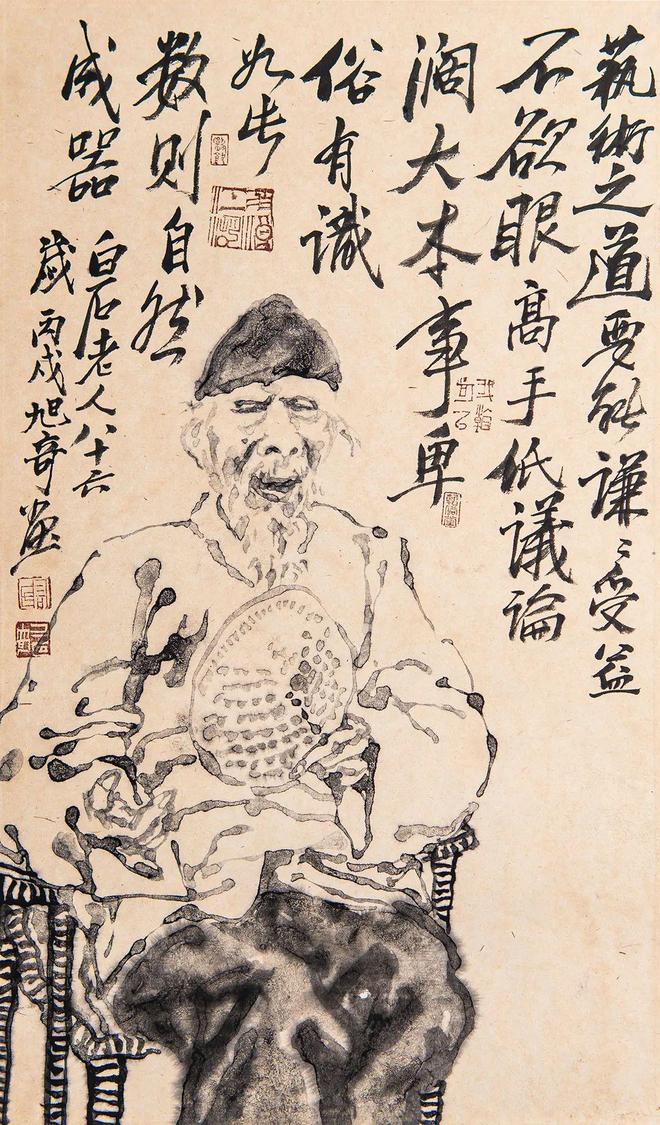 藝術之道要能謙〻受益
不欲眼高手低議論
闊大本事卑
俗有識
如此
數則自然
成器
白石老人八十六
歲丙戌旭奇畫